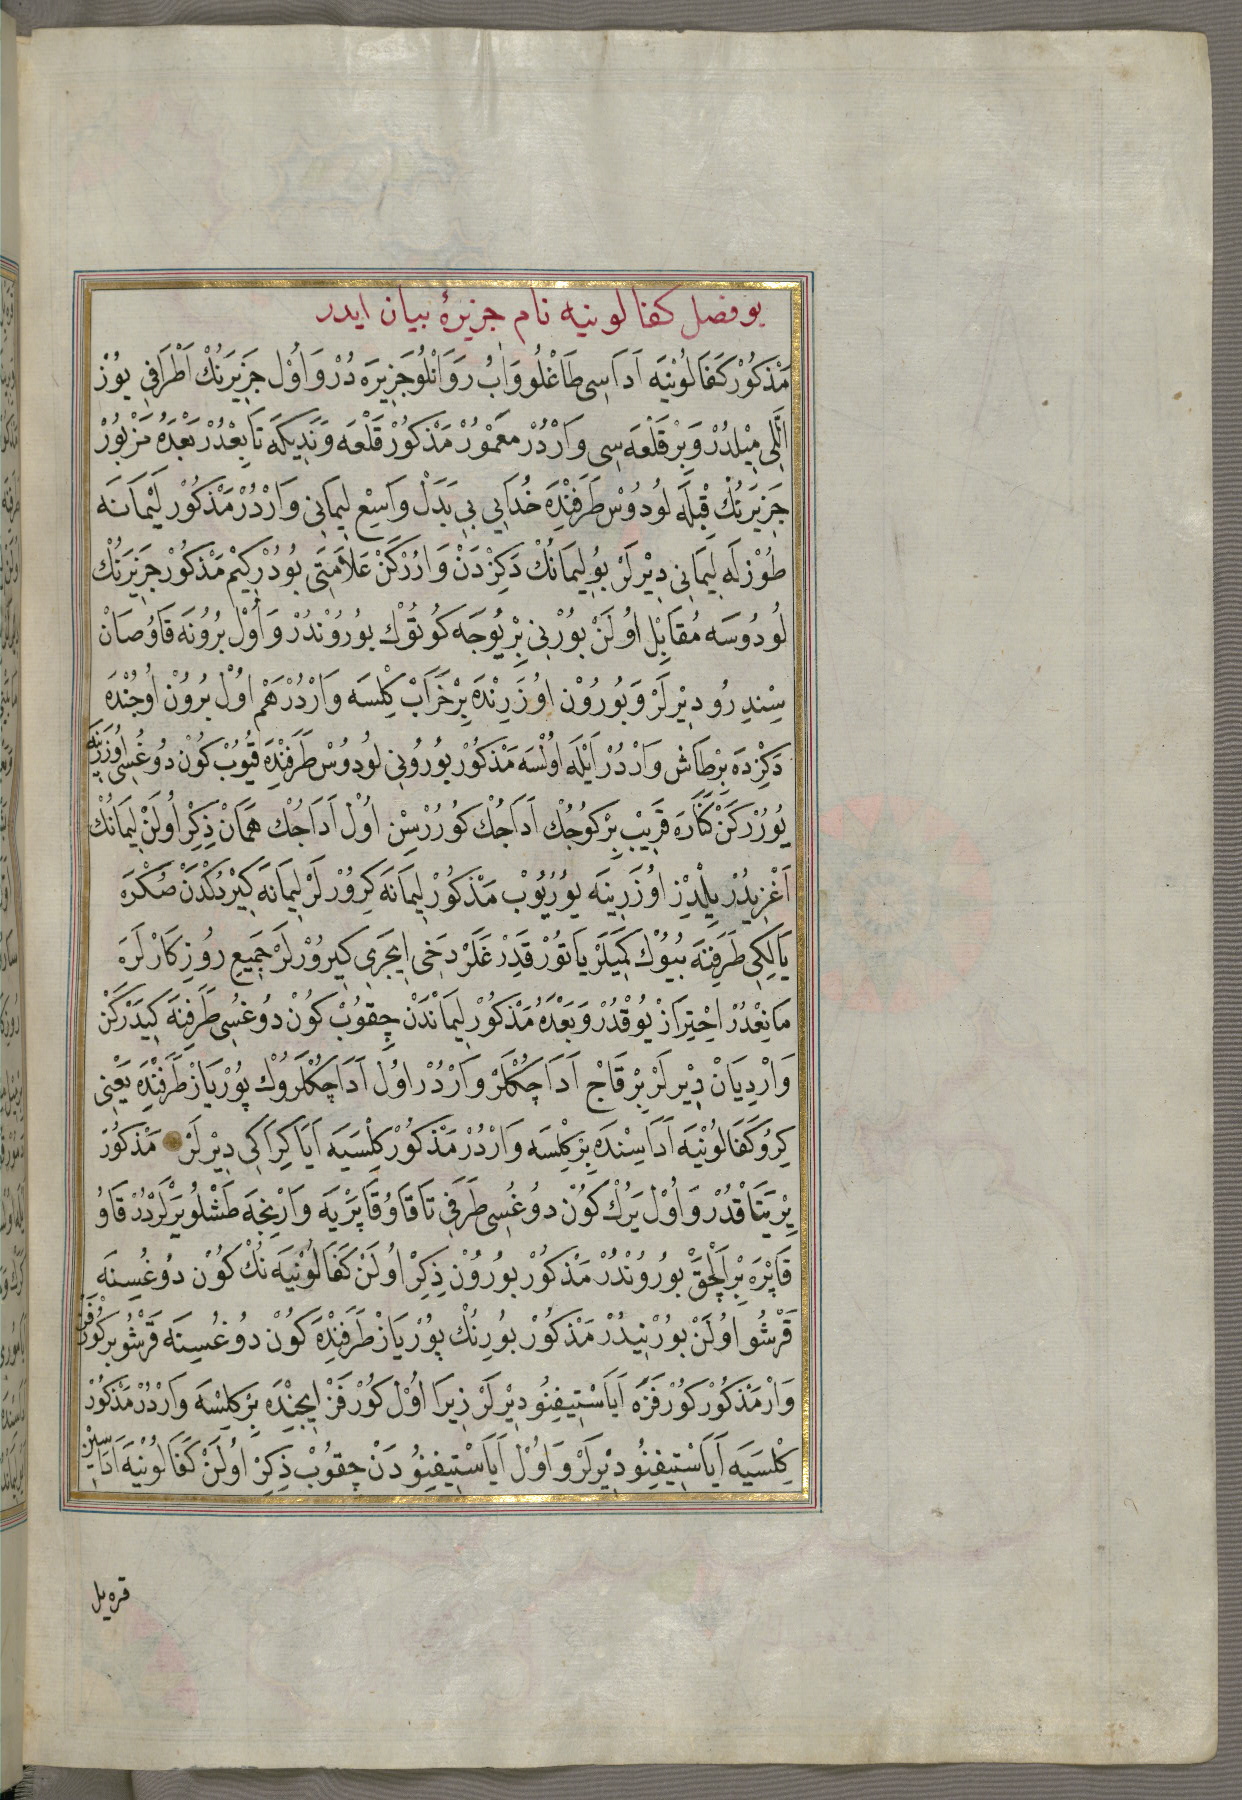 بو فصل كفالونيه نام جزيرۀ بيان ايدر
مَذْكُوْر كَفَالُوْنِيَه اَدَاسِى طَاغْلُو وَابُ رَوَانْلُو جَزِيرَه دُرْ وَاُوْل جَزِيرَنُكْ اَطْرَافِى يُوْز
اَللِّى مِيْلدُرْ وَبِرْ قَلْعَه سِى وَارْدُرْ مَعْمُوْرْ مَذْكُوْرْ قَلْعَه وَنَدِيكَه تَابِعْدُرْ بَعْدَهُ مَزْبُوْر
جَزِيرَنُكْ قِبْلَه لُودُوْسْ طَرَفِنْدَه خُدَايِى بِى بَدَلْ وَاسِعْ لِيمَانِى وَارْدُرْ مَذْكُوْر لِيْمَانَه
طُوْزلَه لِيمَانِى دِيْرلَرْ بُو لِيمَانُكْ دَكِزْدَنْ وَارُرْكَنْ عَلَامَتِى بُودُرْكِيْم مَذْكُوْر جَزِيرَنُكْ
لُودُوسَه مُقَابِلْ اُولَنْ بُوْرْنِى بِرْ يُوجَه كُوتُوْك بُورُوْنْدُرْ وَاُوْل بُرُونَه قَاوُصَانْ
سِنْدِرُو دِيْرلَرْ وَبُورُوْن اُوْزَرِنْدَه بِرْ خَرَابْ كِلْسَه وَارْدُرْ هَم اُوْل بُرُوْن اُوجُنْدَه
دَكِزْدَه بِرْ طَاش وَارْدُرْ اَيْلَه اُوْلْسَه مَذْكُوْر بُورُونِى لُودُوْس طَرَفِنْدَه قُيُوبْ كُوْن دُوغُسِى اُوزَرِينَه
يُورُرْكَنْ كَنَارَه قَرِيبْ بِرْ كُوجُكْ اَدَاجُكْ كُورُرْسِنْ اُوْل اَدَاجُكْ هَمَانْ ذِكِرْ اُولَنْ لِيمَانُكْ
اَغْزِيدُرْ يِلْدِيْز اُوْزَرِينَه يُورُيُوبْ مَذْكُوْر لِيمَانَه كِرُوْرلَرْ لِيمَانَه كِيْرْدُكْدَنْ صُكْرَه
يَالِكِى طَرَفِنَه بُيُوْك كَمِيلَرْ يَاتُوْرْ قَدِرْغَلَرْ دَخِى اِيجَرِى كِيرُوْرلَرْ جَمِيعِ رُوزِكَارْلَرَه
مَانِعْدُرْ اِحْتِرَازْ يُوْقْدُرْ وَبَعْدَهُ مَذْكُوْر لِيمَانْدَنْ چِقُوبْ كُوْن دُوغُسِى طَرَفِنَه كِيدَرْكَنْ
وَارْدِيَانْ دِيْرلَرْ بِرْقَاجْ اَدَاجُكْلَرْ وَارْدُرْ اُوْل اَدَاجُكْلَرُوْك پُوْرْيَازْ طَرَفِنْدَه يَعْنِى
كِرُو كَفَالُوْنِيَه اَدَاسِنْدَه بِرْ كِلْسَه وَارْدُرْ مَذْكُوْر كِلْسَيَه اَيَا كِرَاكِى دِيْرلَرْ مَذْكُوْر
يِرْ يَتَاقْدُرْ وَاُوْل يَرُكْ كُوْن دُوغُسِى طَرَفِى تَا قَاوُ قَاپْرَيَه وَارِنْجَه طَاشْلُو يَرْلَرْدُرْ قَاوُ
قَاپْرَه بِرْ اَلْچَقْ بُورُوْنْدُرْ مَذْكُوْر بُورُوْن ذِكِرْ اُولَنْ كَفَالُوْنِيَه نُكْ كُوْن دُوغُسِنَه
قَرْشُو اُولَنْ بُوْرْنِيدُرْ مَذْكُوْر بُورِنُكْ پُوْرْيَازْ طَرَفِنْدَه كُوْن دُوغُسِنَه قَرْشُو بِرْ كُوْرفَزْ
وَارْ مَذْكُوْر كُوْرفَزَه اَيَاسْتِيفِنُو دِيْرلَرْ زِيرَا اُوْل كُوْرفَزْ اِيجِنْدَه بِرْ كِلِسَه وَارْدُرْ مَذْكُوْر
كِلْسَيَه اَيَاسْتِيفِنُو دِيْرلَرْ وَاُوْل اَيَاسْتِيفِنُو دَنْ چِقُوبْ ذِكِرْ اُولَنْ كَفَالُوْنِيَه اَدَاسِنْ
قره يل